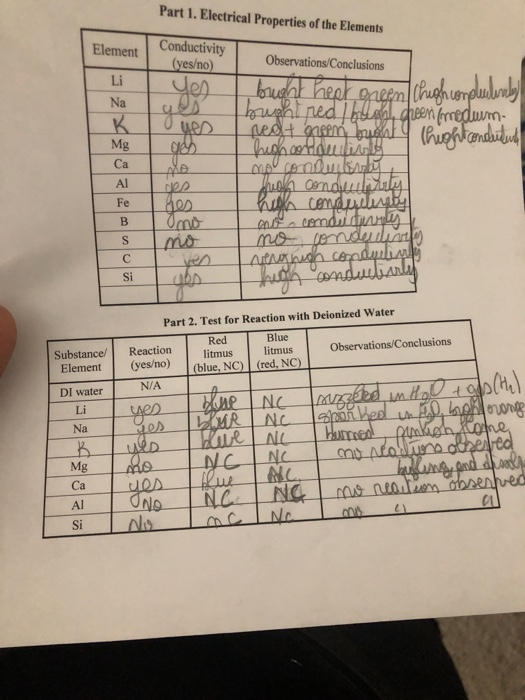 Part 1. Electrical Properties of the Elements
Element Conductivity (yes/no) Observations/Conclusions
Li yes bright green (high conductivity)
Na yes bright red / green (medium-
K yes red + green bright (high conductivity
Mg yes high conductivity
Ca no no conductivity
Al yes high conductivity
Fe yes high conductivity
B no no conductivity
S no no conductivity
C yes very high conductivity
Si yes high conductivity
Part 2. Test for Reaction with Deionized Water
Substance/ Element Reaction (yes/no) Red litmus (blue, NC) Blue litmus (red, NC) Observations/Conclusions
DI water N/A
Li yes blue NC in H2O + gas (H2)
Na yes blue NC sparked in H2O, orange
K yes blue NC burned, pinkish flame
Mg no NC NC no reactions observed
Ca yes blue NC and
Al No NC NC no reaction observed
Si No NC NC no " "